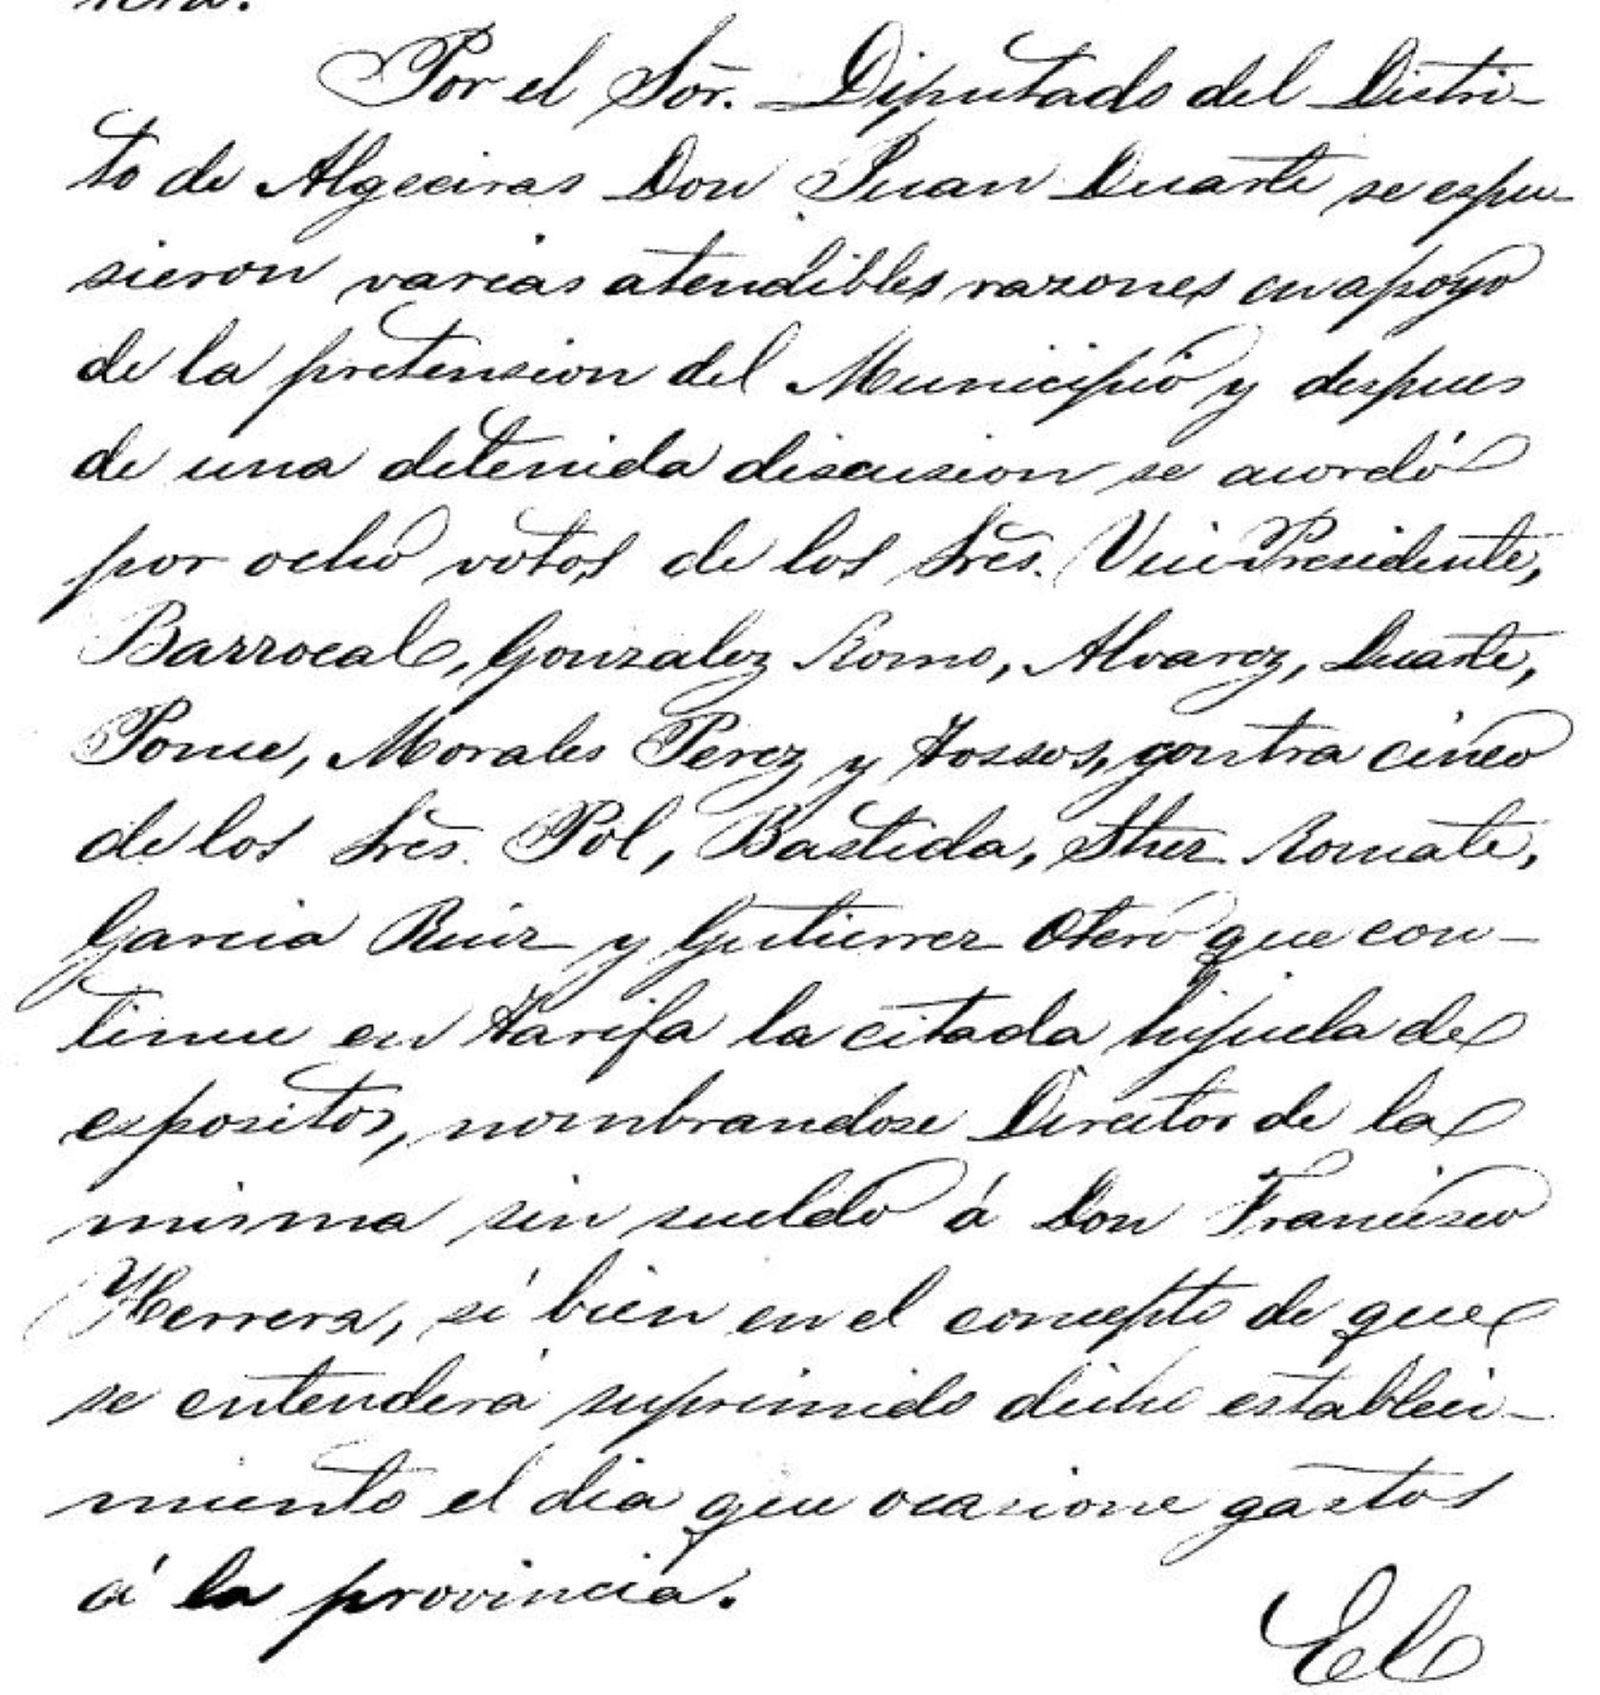 Por el Sor. Diputado del Distri-
to de Algeciras Don Juan Duarte se espu-
sieron varias atendibles razones en apoyo
de la pretension del Municipio y despues
de una detenida discusion se acordó
por ocho votos de los Sres. Vice-Presidente,
Barrocal, Gonzalez Romo, Alvarez, Duarte,
Ponce, Morales Perez y Tossos, contra cinco
de los Sres. Pol, Bastida, Shez. Romate,
Garcia Ruiz y Gutierrez Otero que con-
tinue en Tarifa la citada hijuela de
espositos, nombrandose Director de la
misma sin sueldo á Don Francisco
Herrera, si bien en el concepto de que
se entenderá suprimido dicho estableci-
miento el dia que ocasione gastos
á la provincia.
El